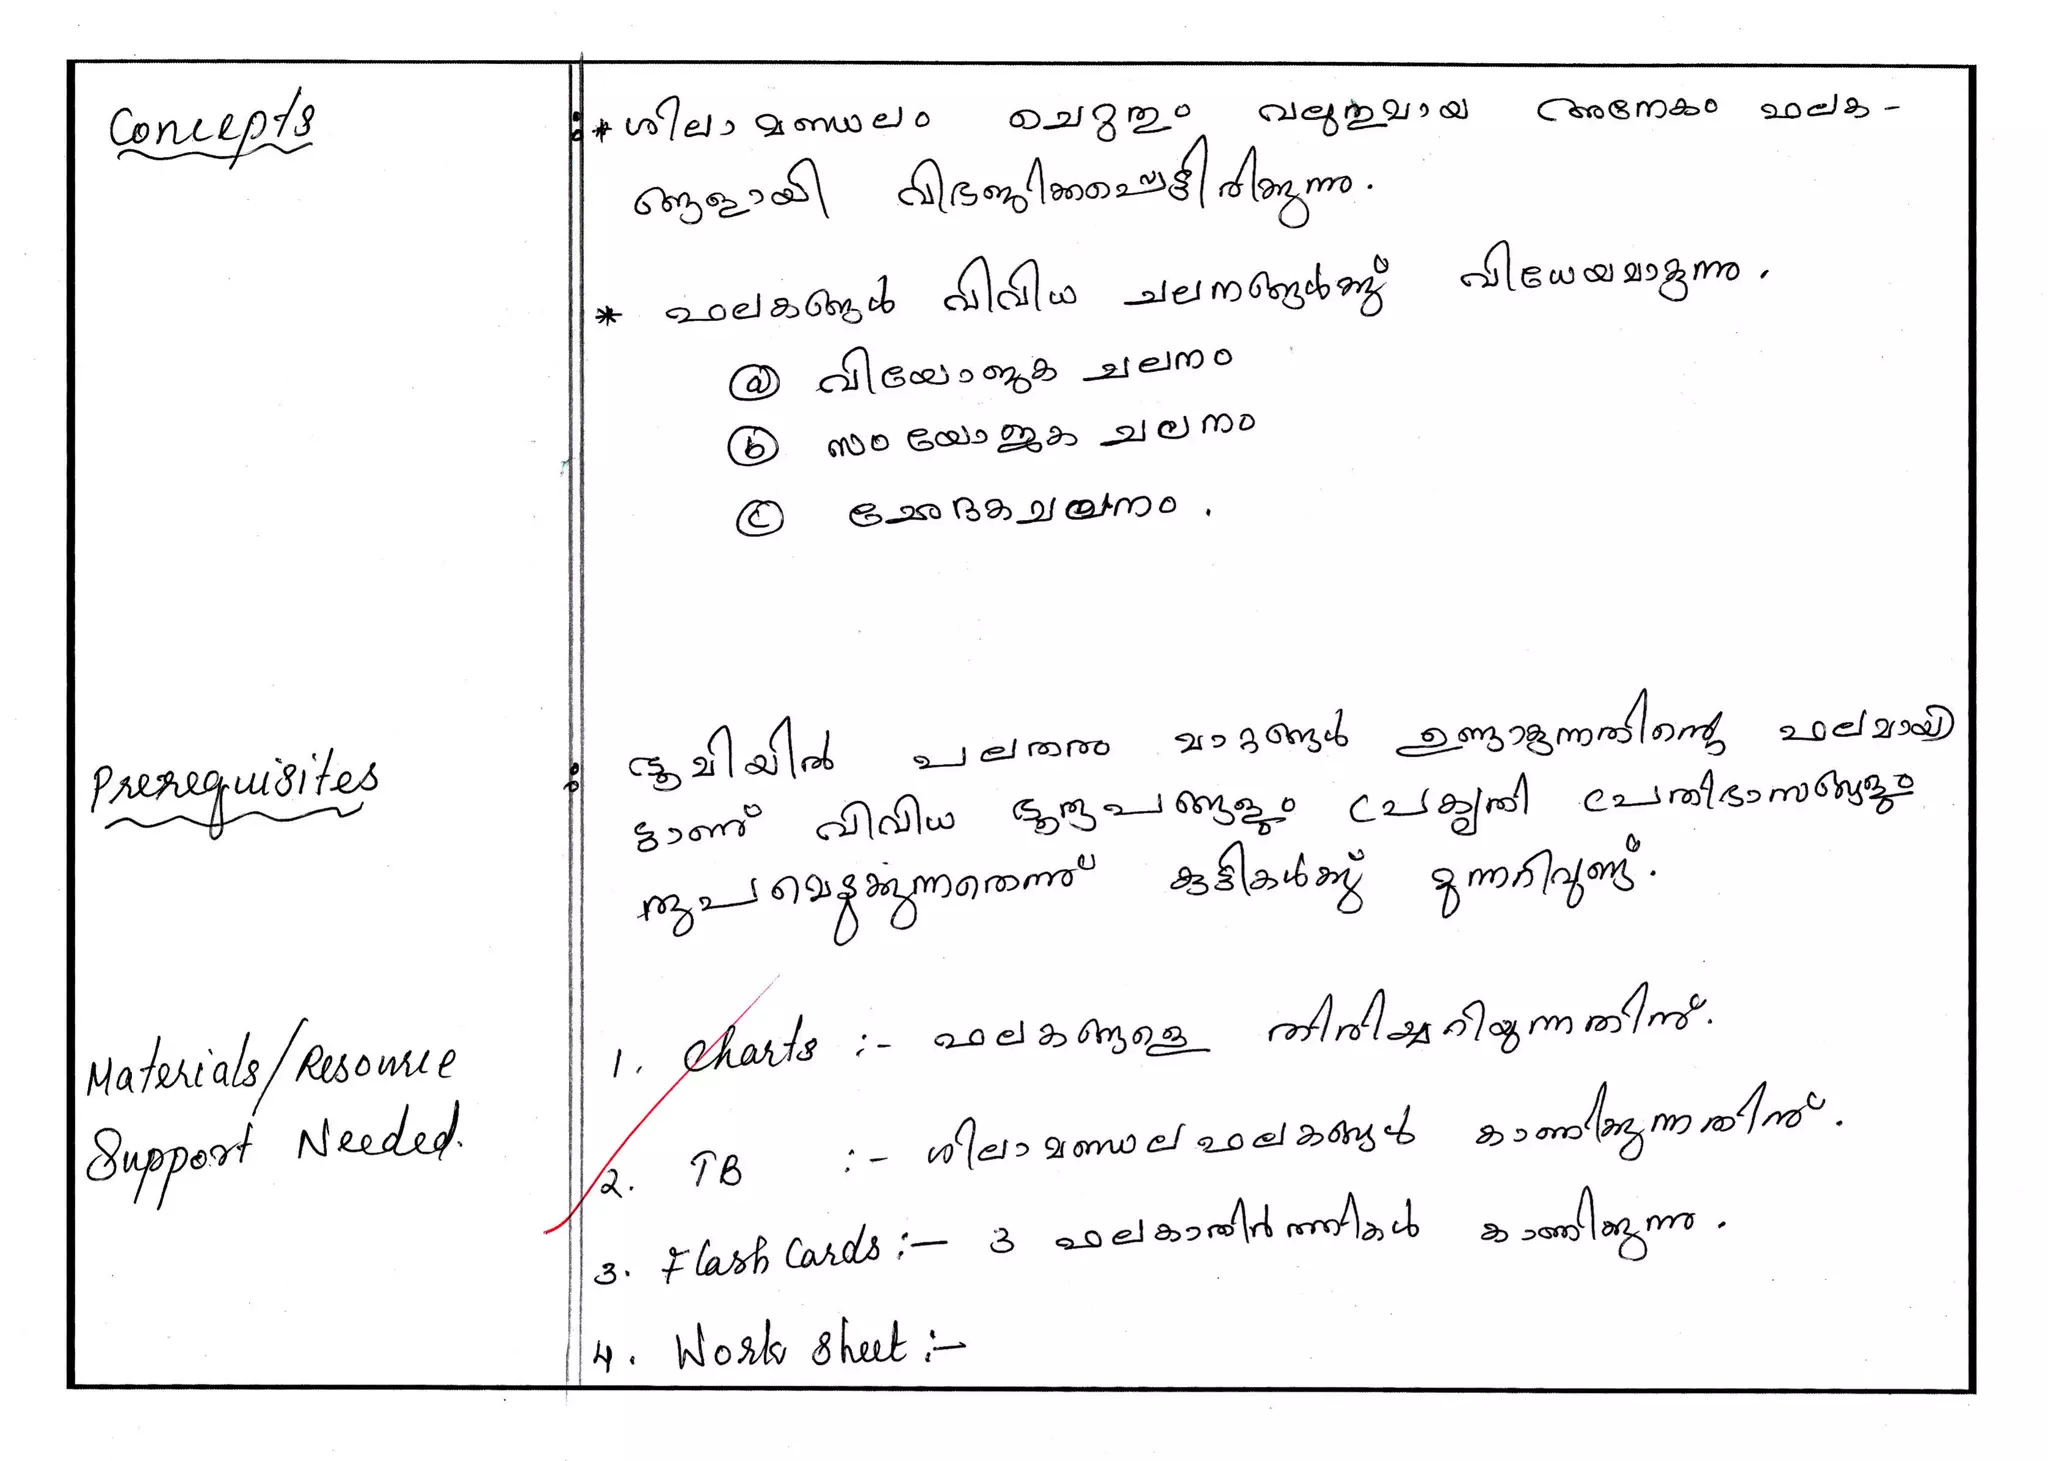 Concepts : * ശിലാമണ്ഡലം ചെറുതും വലുതുമായ അനേകം ഫലക-
ങ്ങളായി വിഭജിക്കപ്പെട്ടിരിക്കുന്നു.
* ഫലകങ്ങൾ വിവിധ ചലനങ്ങൾക്ക് വിധേയമാകുന്നു.
ⓐ വിയോജക ചലനം
ⓑ സംയോജക ചലനം
ⓒ ഛേദകചലനം.
Prerequisites : ഭൂമിയിൽ പലതരം മാറ്റങ്ങൾ ഉണ്ടാകുന്നതിന്റെ ഫലമായി
ട്ടാണ് വിവിധ ഭൂരൂപങ്ങളും പ്രകൃതി പ്രതിഭാസങ്ങളും
രൂപപ്പെടുന്നതെന്ന് കുട്ടികൾക്ക് മുന്നറിവുണ്ട്.
Materials/Resource
Support Needed.
1. Charts :- ഫലകങ്ങളെ തിരിച്ചറിയുന്നതിന്.
2. TB :- ശിലാമണ്ഡലഫലകങ്ങൾ കാണിക്കുന്നതിന്.
3. Flash Cards :- 3 ഫലകാതിർത്തികൾ കാണിക്കുന്നു.
4. Work Sheet :-